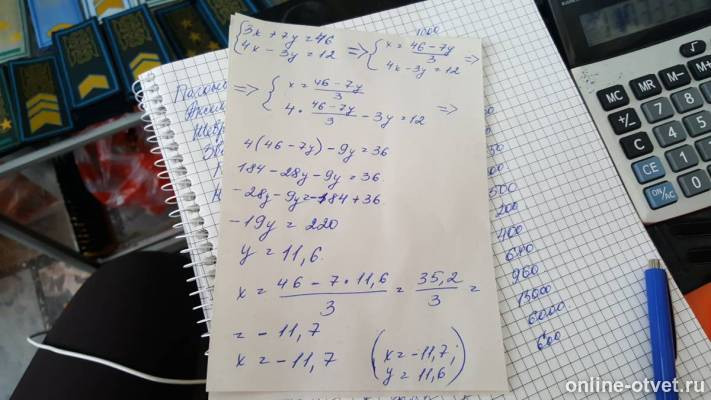 {3x + 7y = 46
4x - 3y = 12 => {x = 46-7y/3
4x - 3y = 12 =>
=> {x = 46-7y/3
4 · 46-7y/3 - 3y = 12 =>
4(46-7y) - 9y = 36
184 - 28y - 9y = 36
-28y - 9y = -184 + 36
-19y = 220
y = 11,6.
x = 46 - 7 · 11,6/3 = 35,2/3 =
= -11,7
x = -11,7 (x = -11,7;
y = 11,6)
1000
500
200
400
640
960
13000
6000
600
MC
MR
M-
M+
+/-
%
7
8
CE
4
5
ON/AC
1
0
online-otvet.ru